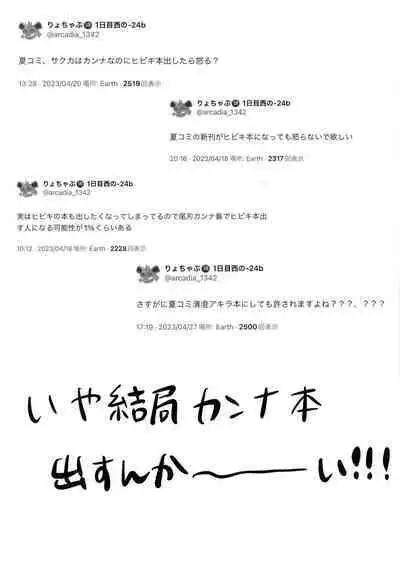 りょちゃぶ🔞 1日目西の-24b
@arcadia_1342
夏コミ、サクカはカンナなのにヒビキ本出したら怒る？
13:28 · 2023/04/20 場所: Earth · 2519回表示
りょちゃぶ🔞 1日目西の-24b
@arcadia_1342
夏コミの新刊がヒビキ本になっても怒らないで欲しい
20:16 · 2023/04/18 場所: Earth · 2317回表示
りょちゃぶ🔞 1日目西の-24b
@arcadia_1342
実はヒビキの本も出したくなってしまってるので尾刃カンナ島でヒビキ本出
す人になる可能性が1%くらいある
10:12 · 2023/04/18 場所: Earth · 2228回表示
りょちゃぶ🔞 1日目西の-24b
@arcadia_1342
さすがに夏コミ清澄アキラ本にしても許されますよね？？？、？？？
17:19 · 2023/04/27 場所: Earth · 2500回表示
いや結局カンナ本
出すんか〜い!!!